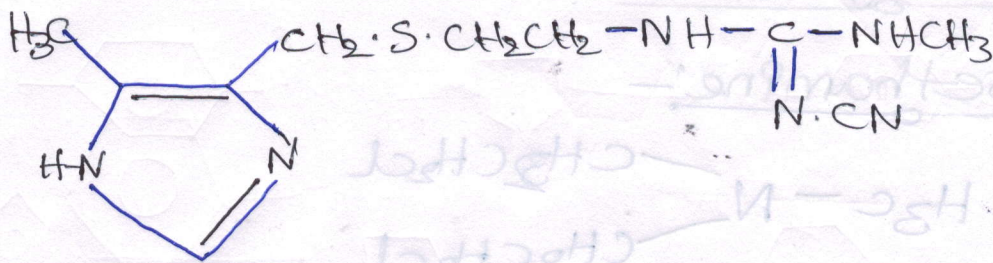 H3C CH2·S·CH2CH2–NH–C–NHCH3
N·CN
H-N N